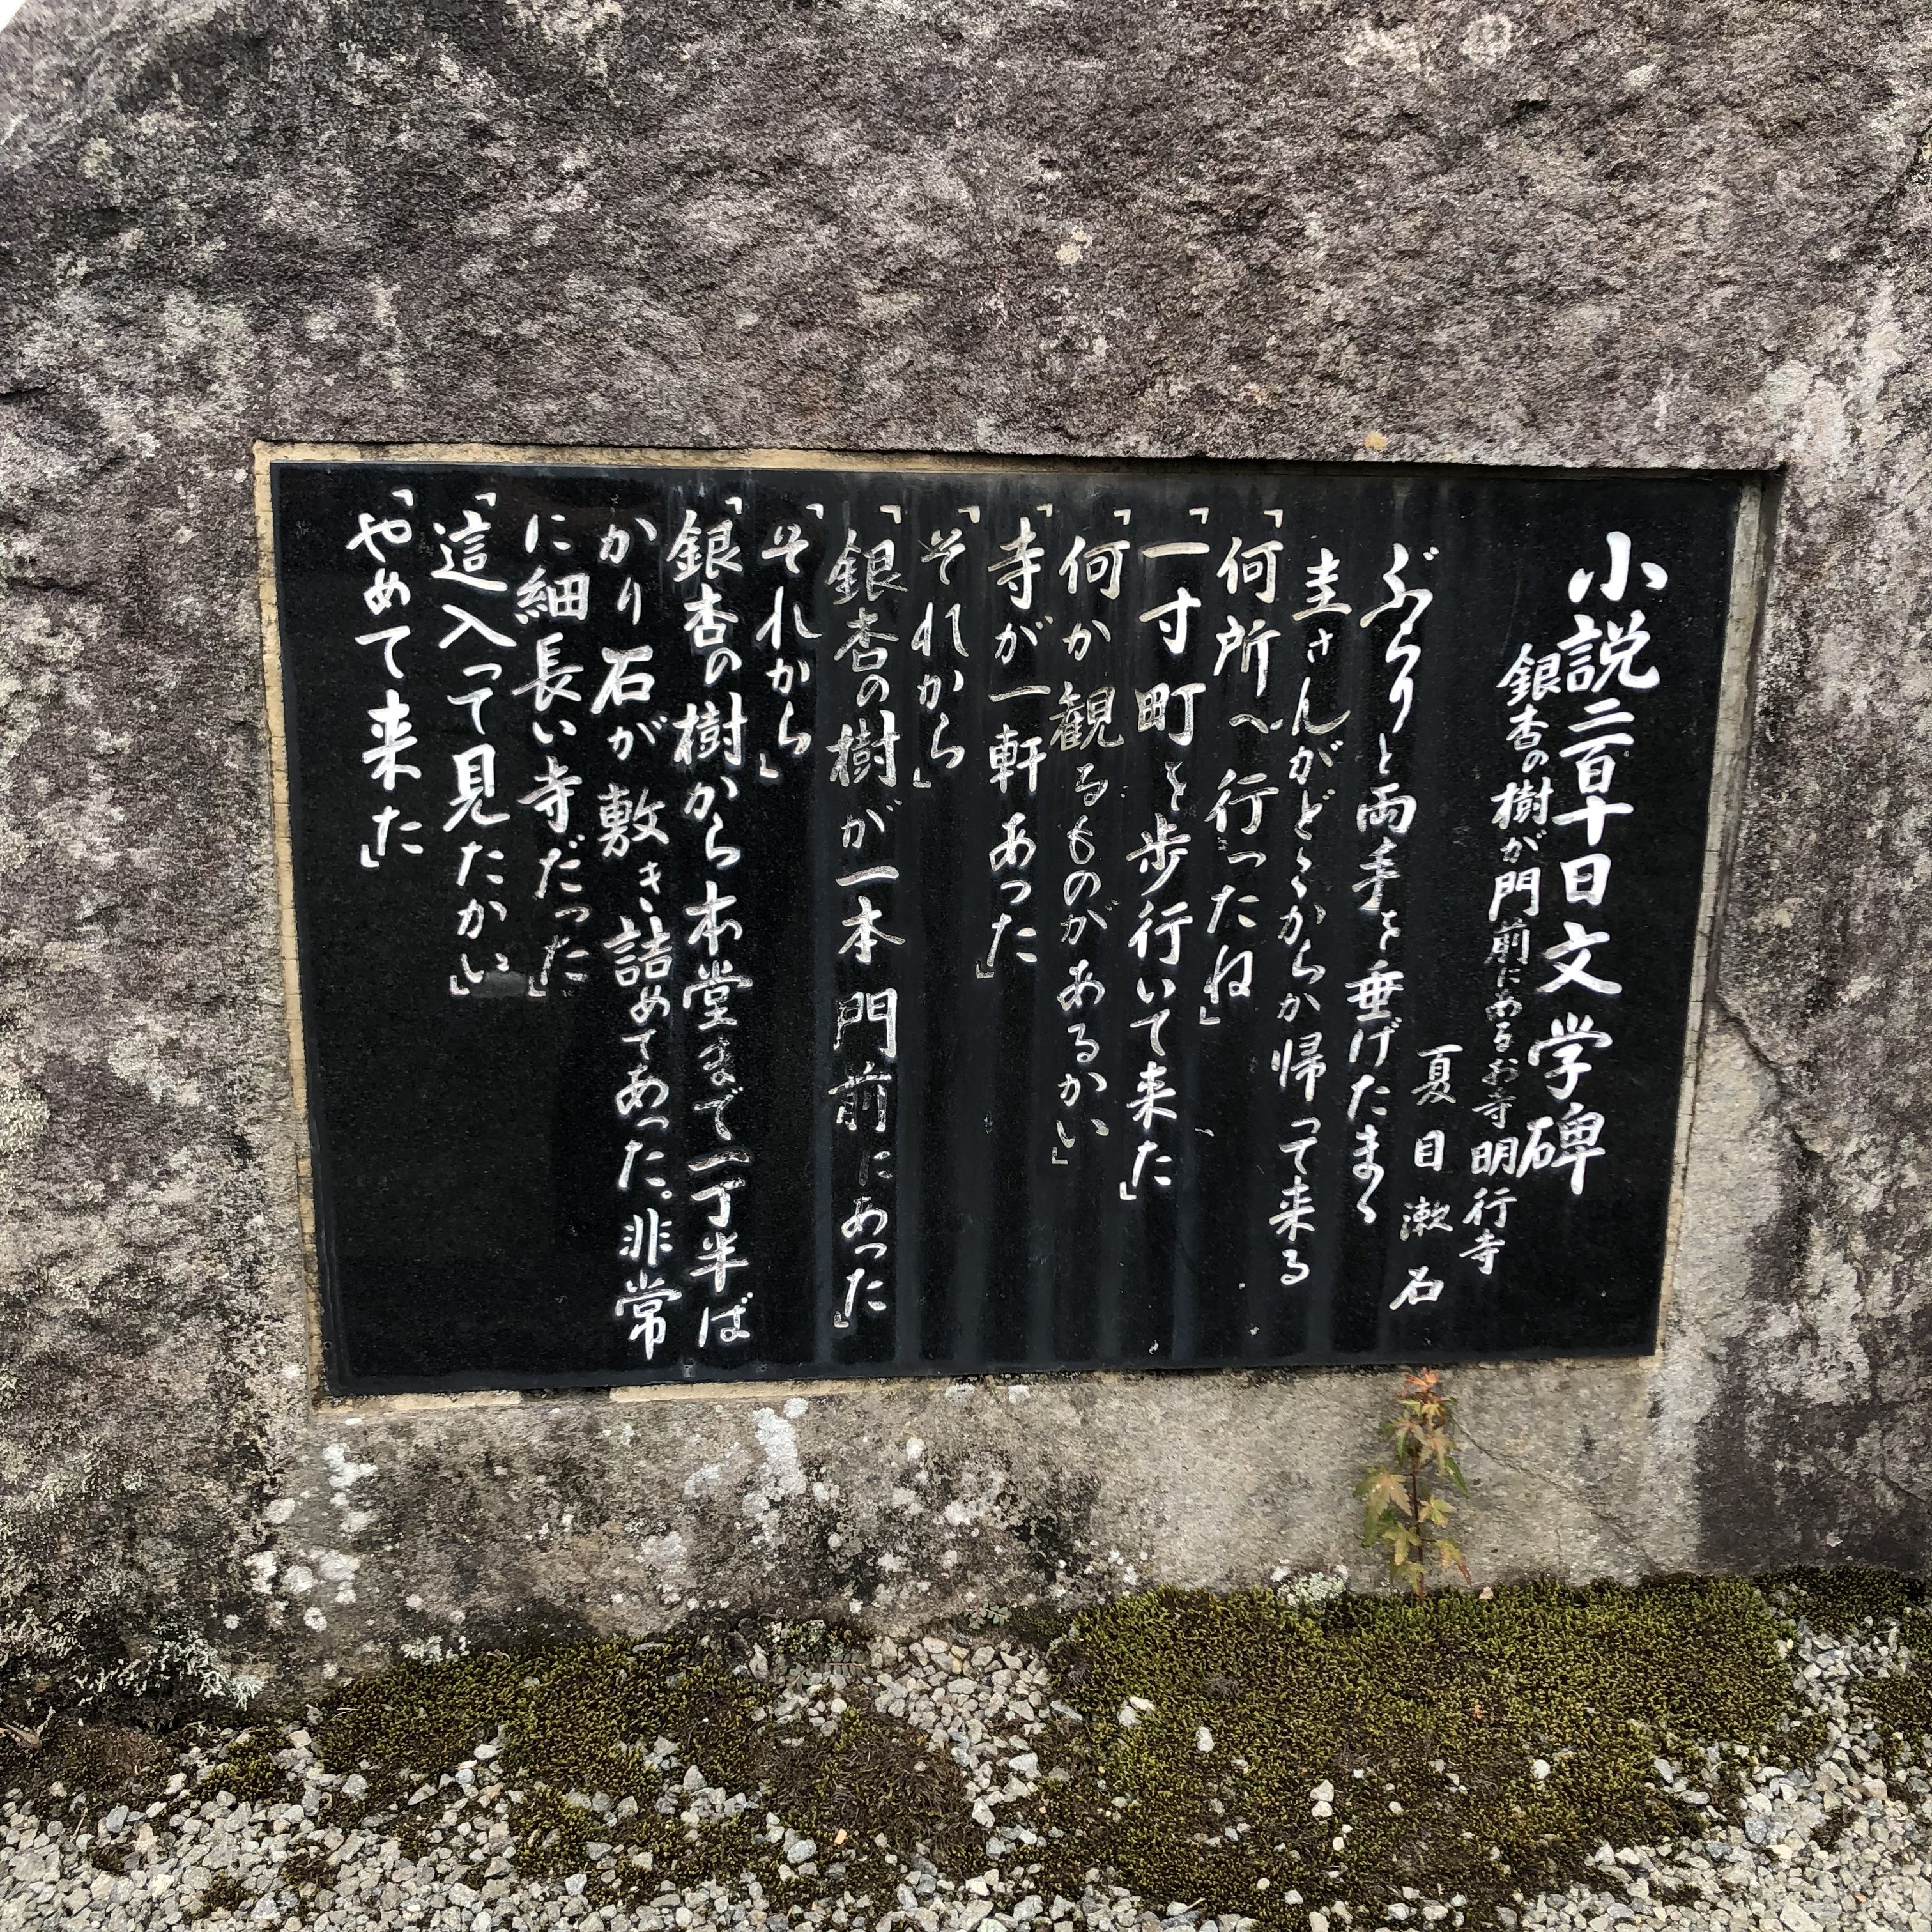 小説二百十日文学碑
銀杏の樹が門前にあるお寺明行寺
夏目漱石
ぶらりと両手を垂げたまゝ
圭さんがどこからか帰って来る
「何所へ行ったね」
「一寸町を歩行いて来た」
「何か観るものがあるかい」
「寺が一軒あった」
「それから」
「銀杏の樹が一本門前にあった」
「それから」
「銀杏の樹から本堂まで一丁半ば
かり石が敷き詰めてあった。非常
に細長い寺だった」
「這入って見たかい」
「やめて来た」